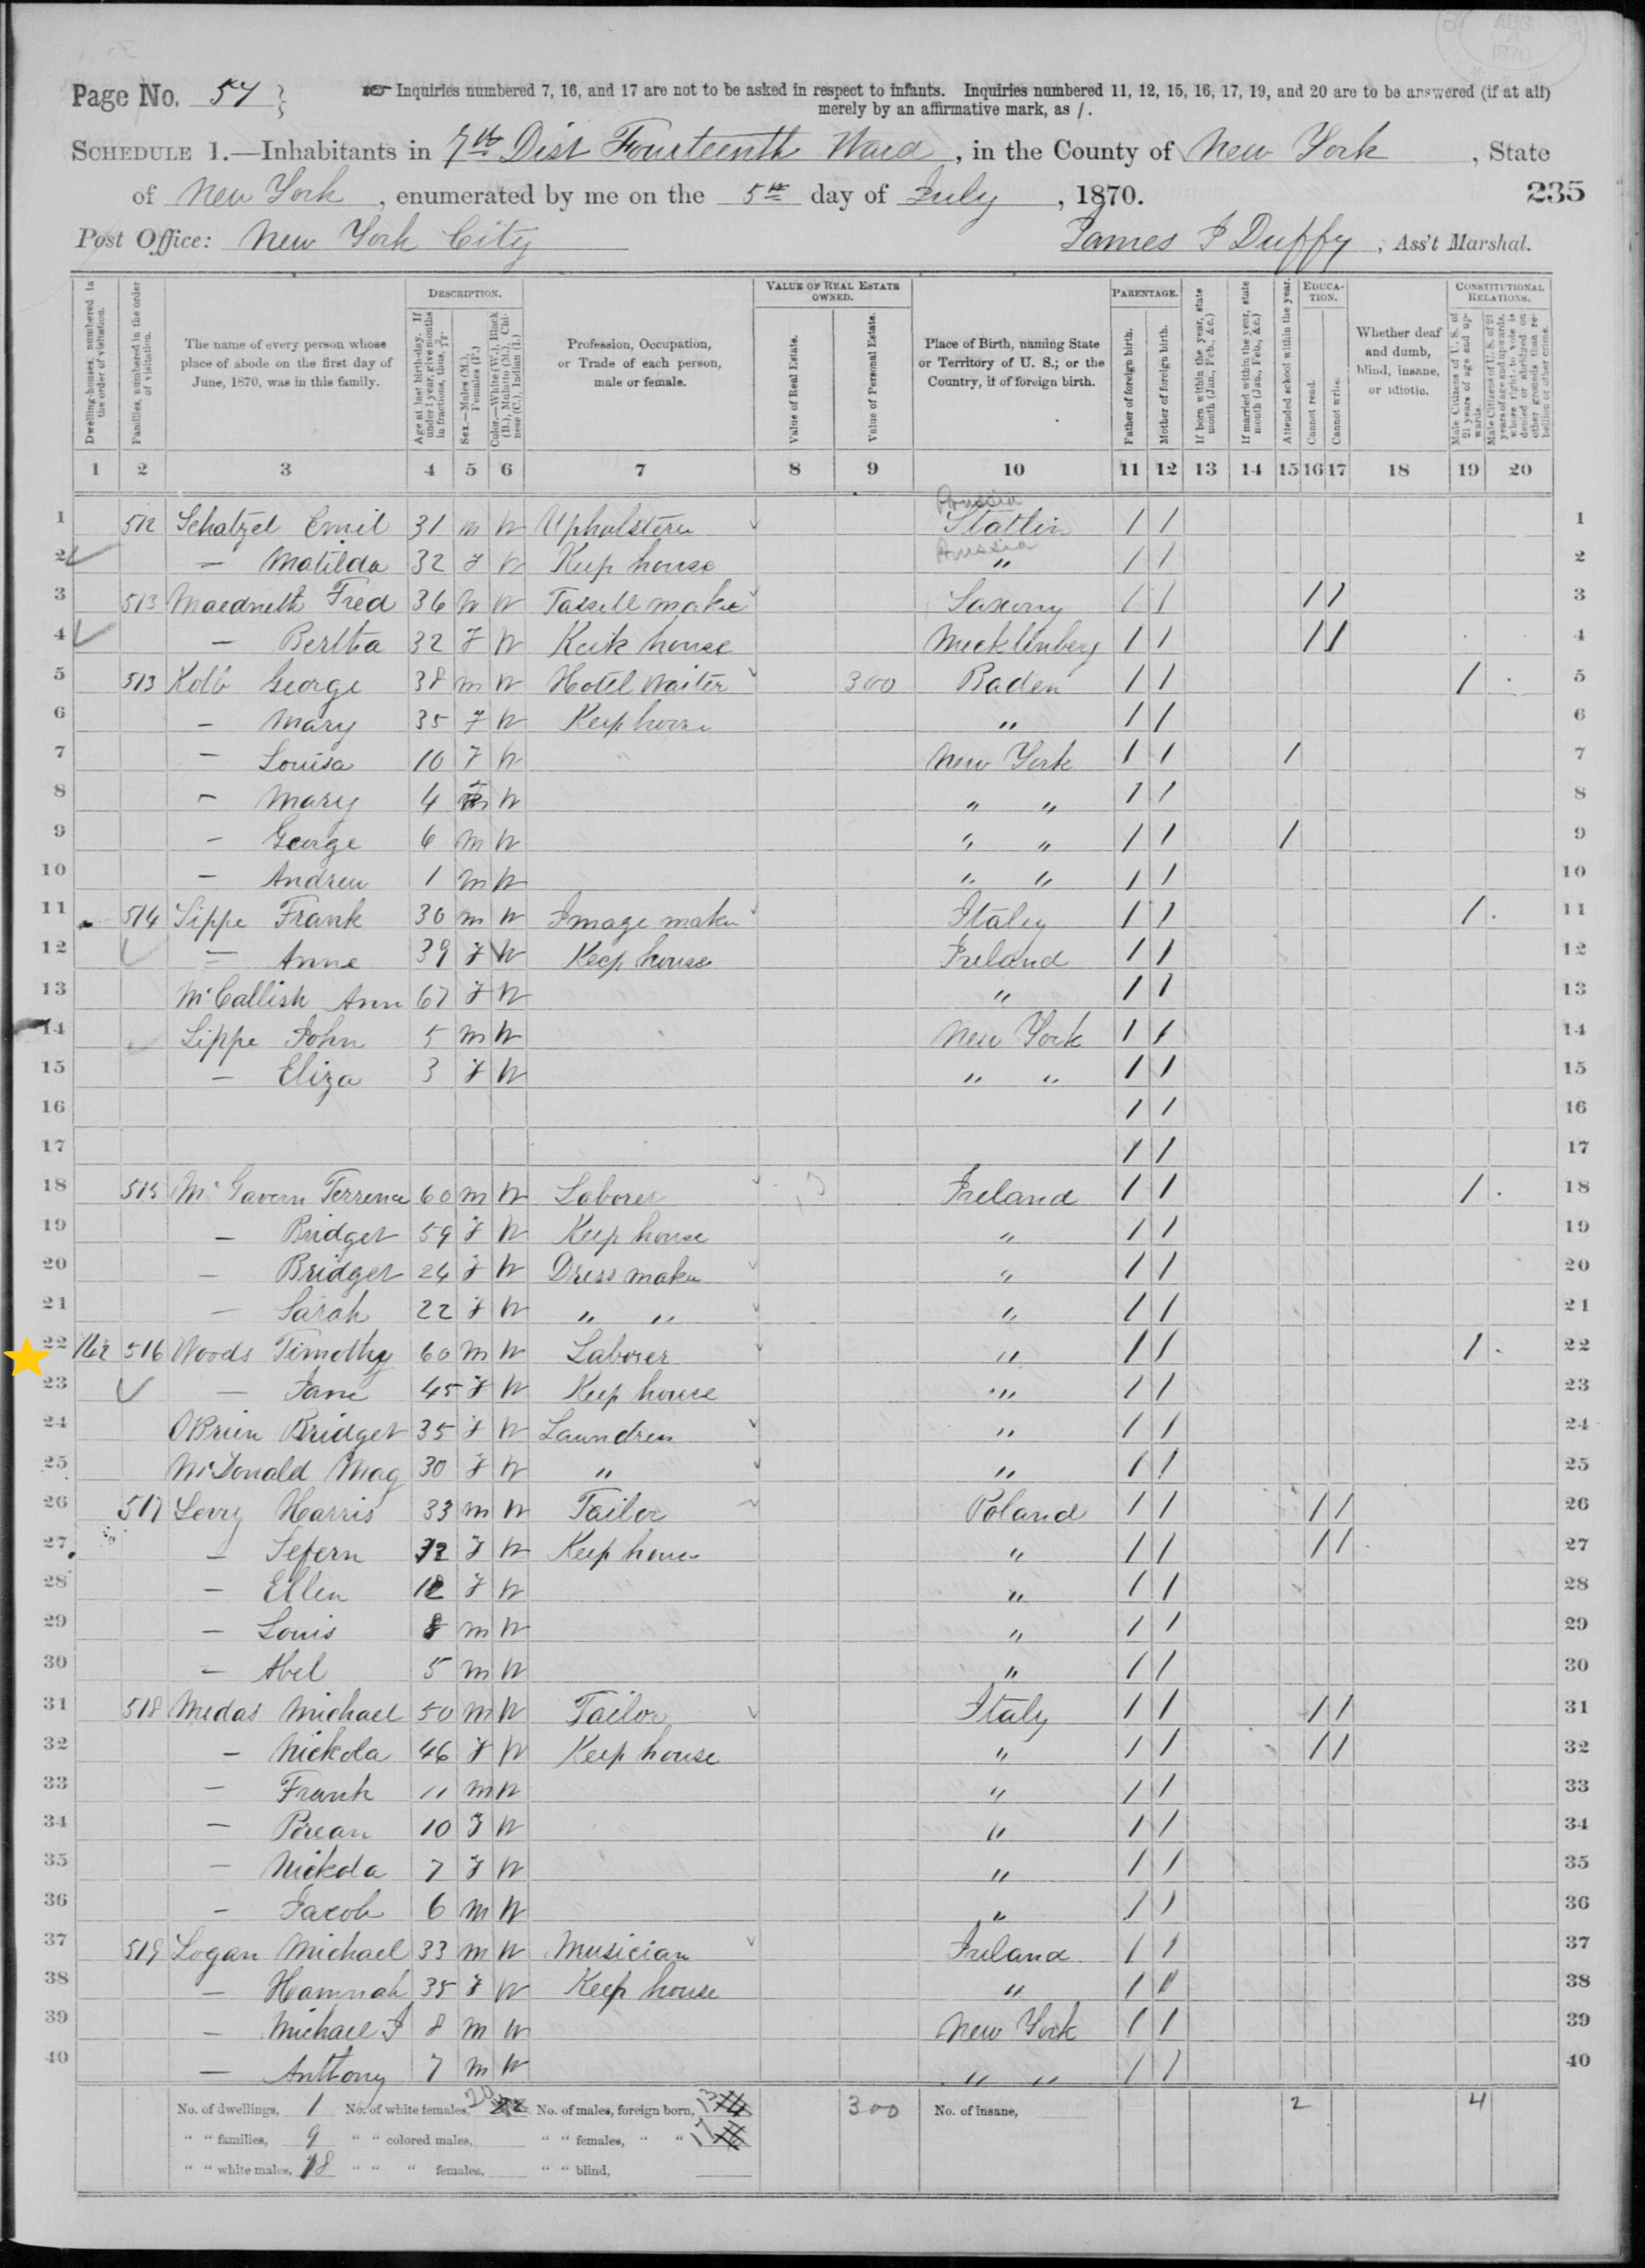 AUG 1870
Page No. 54
Inquiries numbered 7, 16, and 17 are not to be asked in respect to infants. Inquiries numbered 11, 12, 15, 16, 17, 19, and 20 are to be answered (if at all)
merely by an affirmative mark, as /.
SCHEDULE 1.—Inhabitants in 7th Dist Fourteenth Ward, in the County of New York, State
of New York, enumerated by me on the 5th day of July, 1870. 235
Post Office: New York City James J Duffy, Ass't Marshal.
Dwelling-houses, numbered in the order of visitation.
Families, numbered in the order of visitation.
The name of every person whose place of abode on the first day of June, 1870, was in this family.
DESCRIPTION.
Age at last birth-day. If under 1 year, give months in fractions, thus, 3/12.
Sex.—Males (M.), Females (F.)
Color.—White (W.), Black (B.), Mulatto (M.), Chinese (C.), Indian (I.)
Profession, Occupation, or Trade of each person, male or female.
VALUE OF REAL ESTATE OWNED.
Value of Real Estate.
Value of Personal Estate.
Place of Birth, naming State or Territory of U. S.; or the Country, if of foreign birth.
PARENTAGE.
Father of foreign birth.
Mother of foreign birth.
If born within the year, state month (Jan., Feb., &c.)
If married within the year, state month (Jan., Feb., &c.)
Attended school within the year.
EDUCATION.
Cannot read.
Cannot write.
Whether deaf and dumb, blind, insane, or idiotic.
CONSTITUTIONAL RELATIONS.
Male Citizens of U. S. of 21 years of age and upwards.
Male Citizens of U. S. of 21 years of age and upwards, whose right to vote is denied or abridged on other grounds than rebellion or other crime.
1 2 3 4 5 6 7 8 9 10 11 12 13 14 15 16 17 18 19 20
Prussia
1 512 Schatzel Emil 31 m W Upholsterer Stattin / / 1
Prussia
2 — Matilda 32 F W Keep house " / / 2
3 513 Fred 36 W Tassell maker Saxony / / / / 3
4 — Bertha 32 F W house Mecklinberg / / / / 4
5 513 Kolb George 38 m W Hotel Waiter 300 Baden / / / 5
6 — Mary 35 F W Keep house " / / 6
7 — Louisa 10 F W New York / / / 7
8 — Mary 4 F W " " / / 8
9 — George 6 m W " " / / / 9
10 — Andrew 1 m W " " / / 10
11 514 Lippe Frank 30 m W Image maker Italy / / / 11
12 — Anne 39 F W Keep house Ireland / / 12
13 McCallish Ann 67 F W " / / 13
14 Lippe John 5 m W New York / / 14
15 — Eliza 3 F W " " / / 15
16 / / 16
17 / / 17
18 515 McGavern Terrence 60 m W Laborer Ireland / / / 18
19 — Bridget 59 F W Keep house " / / 19
20 — Bridget 24 F W Dress maker " / / 20
21 — Sarah 22 F W " " " / / 21
22 162 516 Woods Timothy 60 m W Laborer " / / / 22
23 — Jane 45 F W Keep house " / / 23
24 OBrien Bridget 35 F W Laundress " / / 24
25 McDonald Mag 30 F W " " / / 25
26 517 Levry Harris 33 m W Tailor Poland / / / / 26
27 — Sefern 32 F W Keep house " / / / / 27
28 — Ellen 12 F W " / / 28
29 — Louis 8 m W " / / 29
30 — Abel 5 m W " / / 30
31 518 Medas Michael 50 m W Tailor Italy / / / / 31
32 — Nickola 46 F W Keep house " / / / / 32
33 — Frank 11 m W " / / 33
34 — 10 F W " / / 34
35 — Nickola 7 F W " / / 35
36 — Jacob 6 m W " / / 36
37 519 Logan Michael 33 m W Musician Ireland / / 37
38 — Hannah 35 F W Keep house " / / 38
39 — Michael J 8 m W New York / / 39
40 — Anthony 7 m W " " / / 40
No. of dwellings, 1 No. of white females, 20 No. of males, foreign born, 13 300 No. of insane, 2 4
" " families, 9 " " colored males, " " females, " " 17
" " white males, 18 " " " females, " " blind,